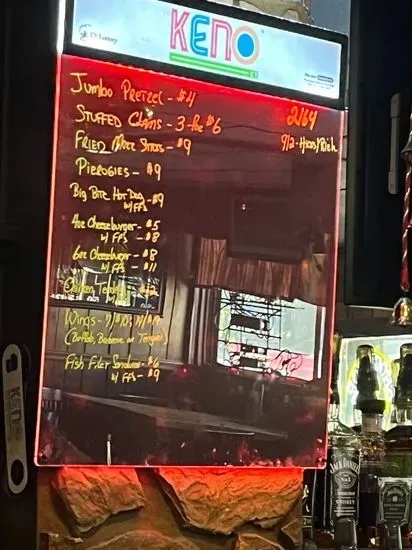 KENO
CT Lottery
Jumbo Pretzel - $4
Stuffed Clams - 3 for $6
Fried Sticks - $9
Pierogies - $9
Big Bite Hot Dog - $9
w/ FFs
4oz Cheeseburger - $5
w/ FFs - $8
6oz Cheeseburger - $8
w/ FFs - $11
Chicken
Wings -
(Buffalo, Barbecue or Teriyaki)
Fish Filet Sandwich - $6
w/ FFs - $9
2164
9/2 -
KENO
JACK DANIEL'S